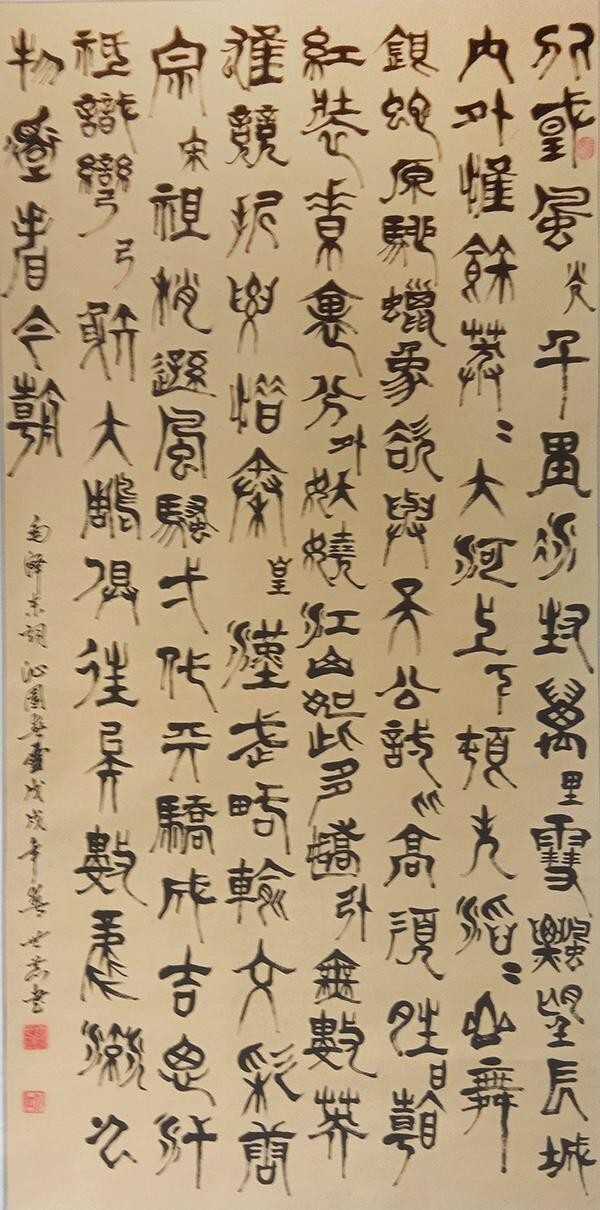 北國風光千里冰封萬里雪飄望長城
內外惟餘莽莽大河上下頓失滔滔山舞
銀蛇原馳蠟象欲與天公試比高須晴日看
紅裝素裹分外妖嬈江山如此多嬌引無數英
雄競折腰惜秦皇漢武略輸文彩唐
宗宋祖稍遜風騷一代天驕成吉思汗
祗識彎弓射大鵰俱往矣數風流人
物還看今朝
毛澤東詞沁園春雪戊戌年世書